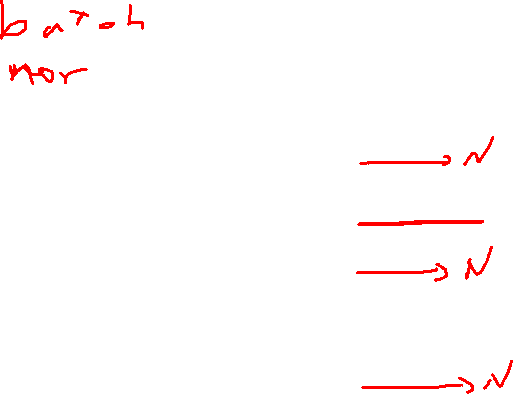 batch
nor
N
N
N